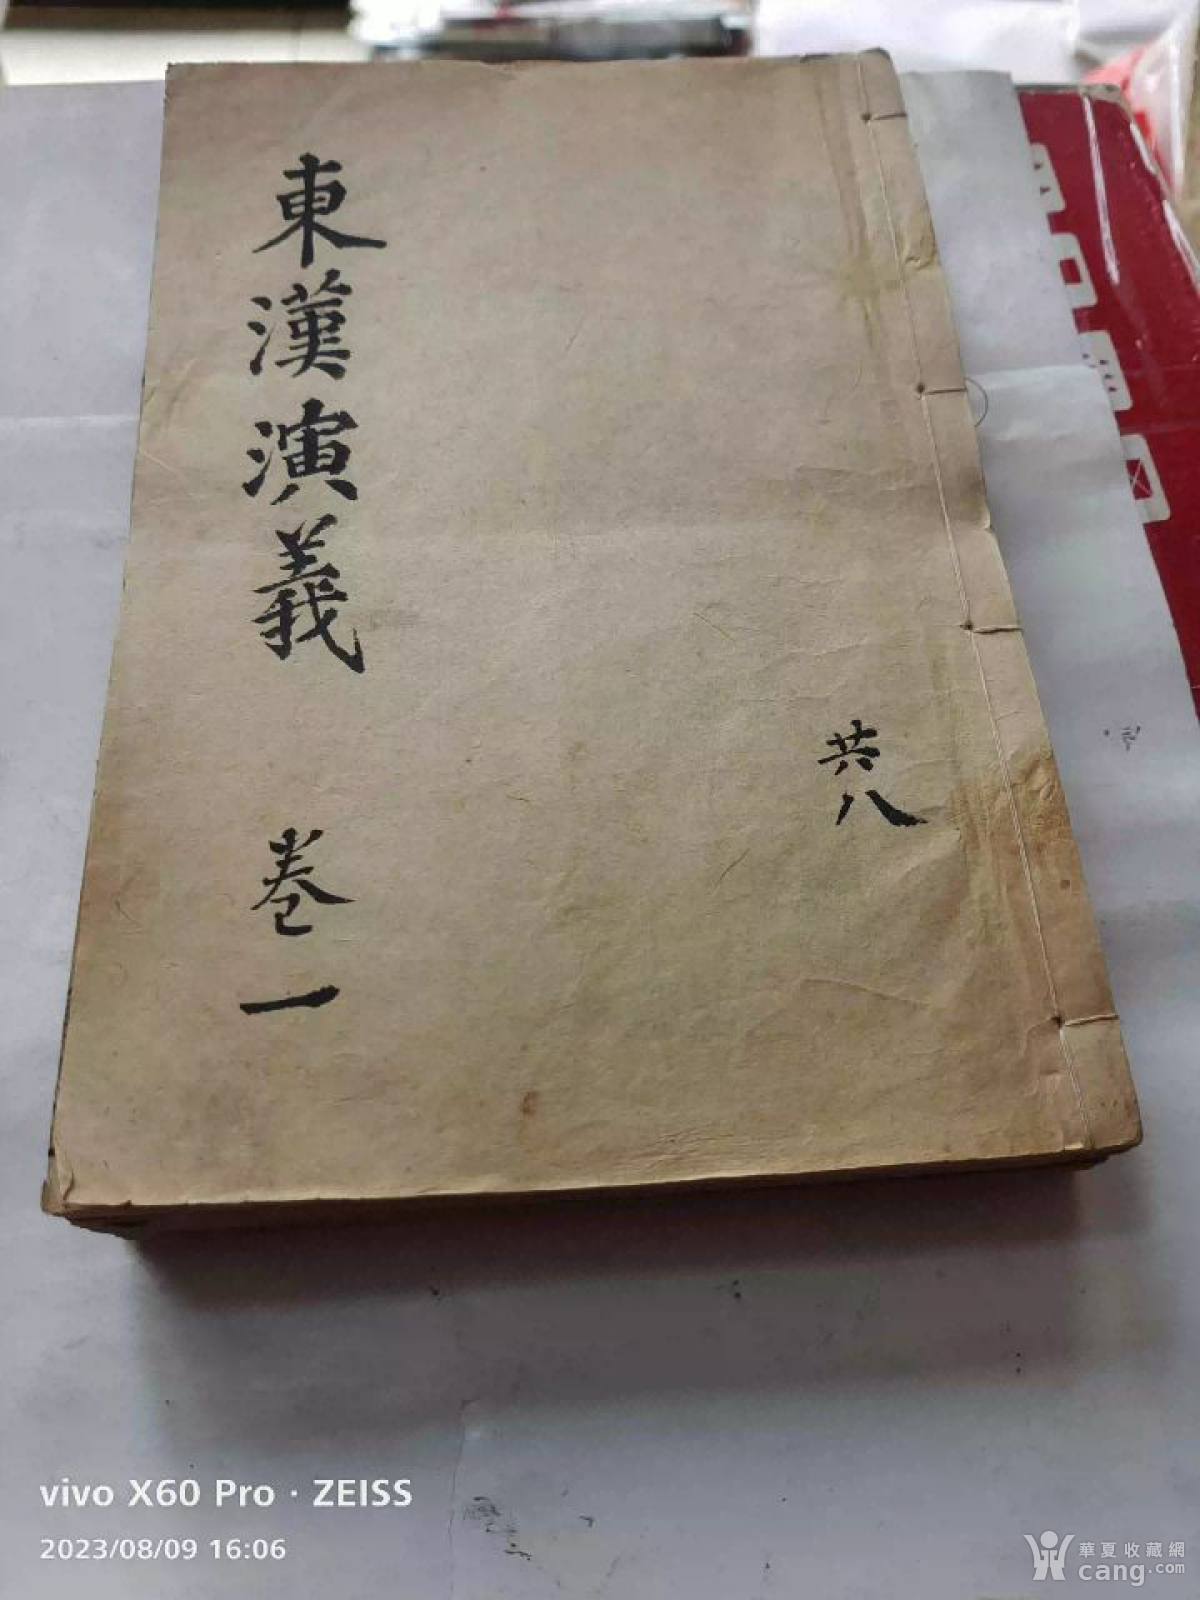 東漢演義 卷一
共八
vivo X60 Pro · ZEISS
2023/08/09 16:06
華夏收藏網
cang.com